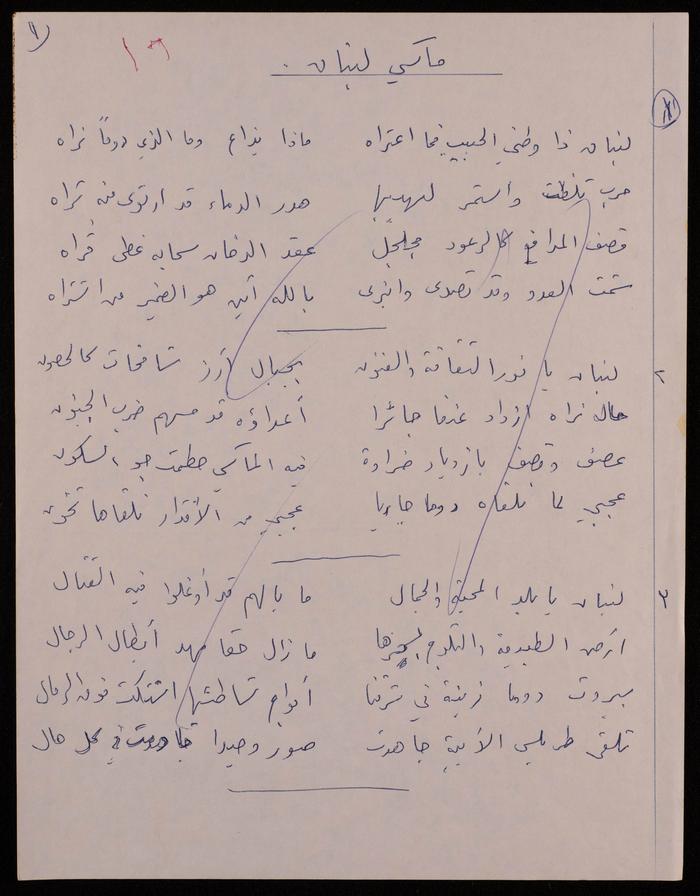 ١
١٦
مآسي لبنان
١
لبنان ذا وطني الحبيب فما اعتراه ماذا يذاع وما الذي دوماً نراه
حرب تلظت واستمر لهيبها هدر الدماء قد ارتوى منه ثراه
قصف المدافع كالرعود مجلجل عقد الدخان سحابه غطى قراه
شمت العدو وقد تصدى وانبرى بالله أين هو الضمير من اشتراه
٢ لبنان يا نور الثقافة والفنون بجبال أرز شامخات كالحصون
حال نراه ازداد عنفا جائرا أعداؤه قد مسهم ضرب الجنون
عصف وقصف بازدياد ضراوة فيه المآسي حطمت جو السكون
عجبي لما نلقاه دوما جاريا عجبي من الأقدار نلقاها تخون
٣ لبنان يا بلد المحبة والجمال ما بالهم قد أوغلوا فيه القتال
أرض الطبيعة والثلوج ما زال حقا مهد أبطال الرجال
بيروت دوما زينة في شرقنا أمواج شاطئها اشتكت فوق الرمال
تلقى طرابلس الأبية جاهدت صور وصيدا جاهدت في كل حال